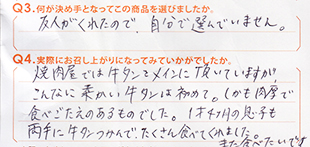 Q3.何が決め手となってこの商品を選びましたか。
友人がくれたので、自分で選んでいません。
Q4.実際にお召し上がりになってみていかがでしたか。
焼肉屋では牛タンをメインに頂いていますが、
こんなに柔かい牛タンは初めて。しかも肉厚で
食べごたえのあるものでした。1才4ヶ月の息子も
両手に牛タンつかんで、たくさん食べてくれました。
また食べたいです